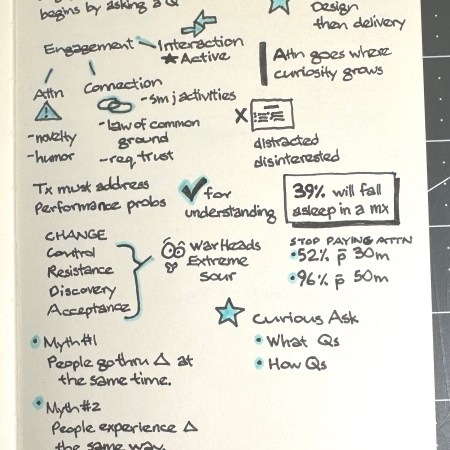 begins by asking a Q
Engagement
Interaction
Active
Attn
Connection
- sm j activities
- novelty
- humor
- law of common
ground
- req. trust
Tx must address
Performance probs
for
understanding
CHANGE
Control
Resistance
Discovery
Acceptance
WarHeads
Extreme
Sour
Myth #1
People go thru Δ at
the same time.
Myth #2
People experience Δ
the same way.
Design
then delivery
Attn goes where
curiosity grows
X
distracted
disinterested
39% will fall
asleep in a mx
STOP PAYING ATTN
52% p̄ 30m
96% p̄ 50m
Curious Ask
What Qs
How Qs